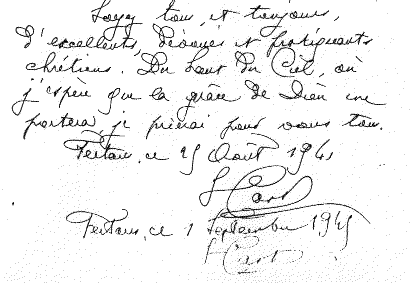 Soyez tous, et toujours,
d'excellents, dévoués et pratiquants
chrétiens. Du haut du Ciel, où
j'espère que la grâce de Dieu me
portera, je prierai pour vous tous.
Fertans, ce 25 Août 1941
Fertans, ce 1 Septembre 1945